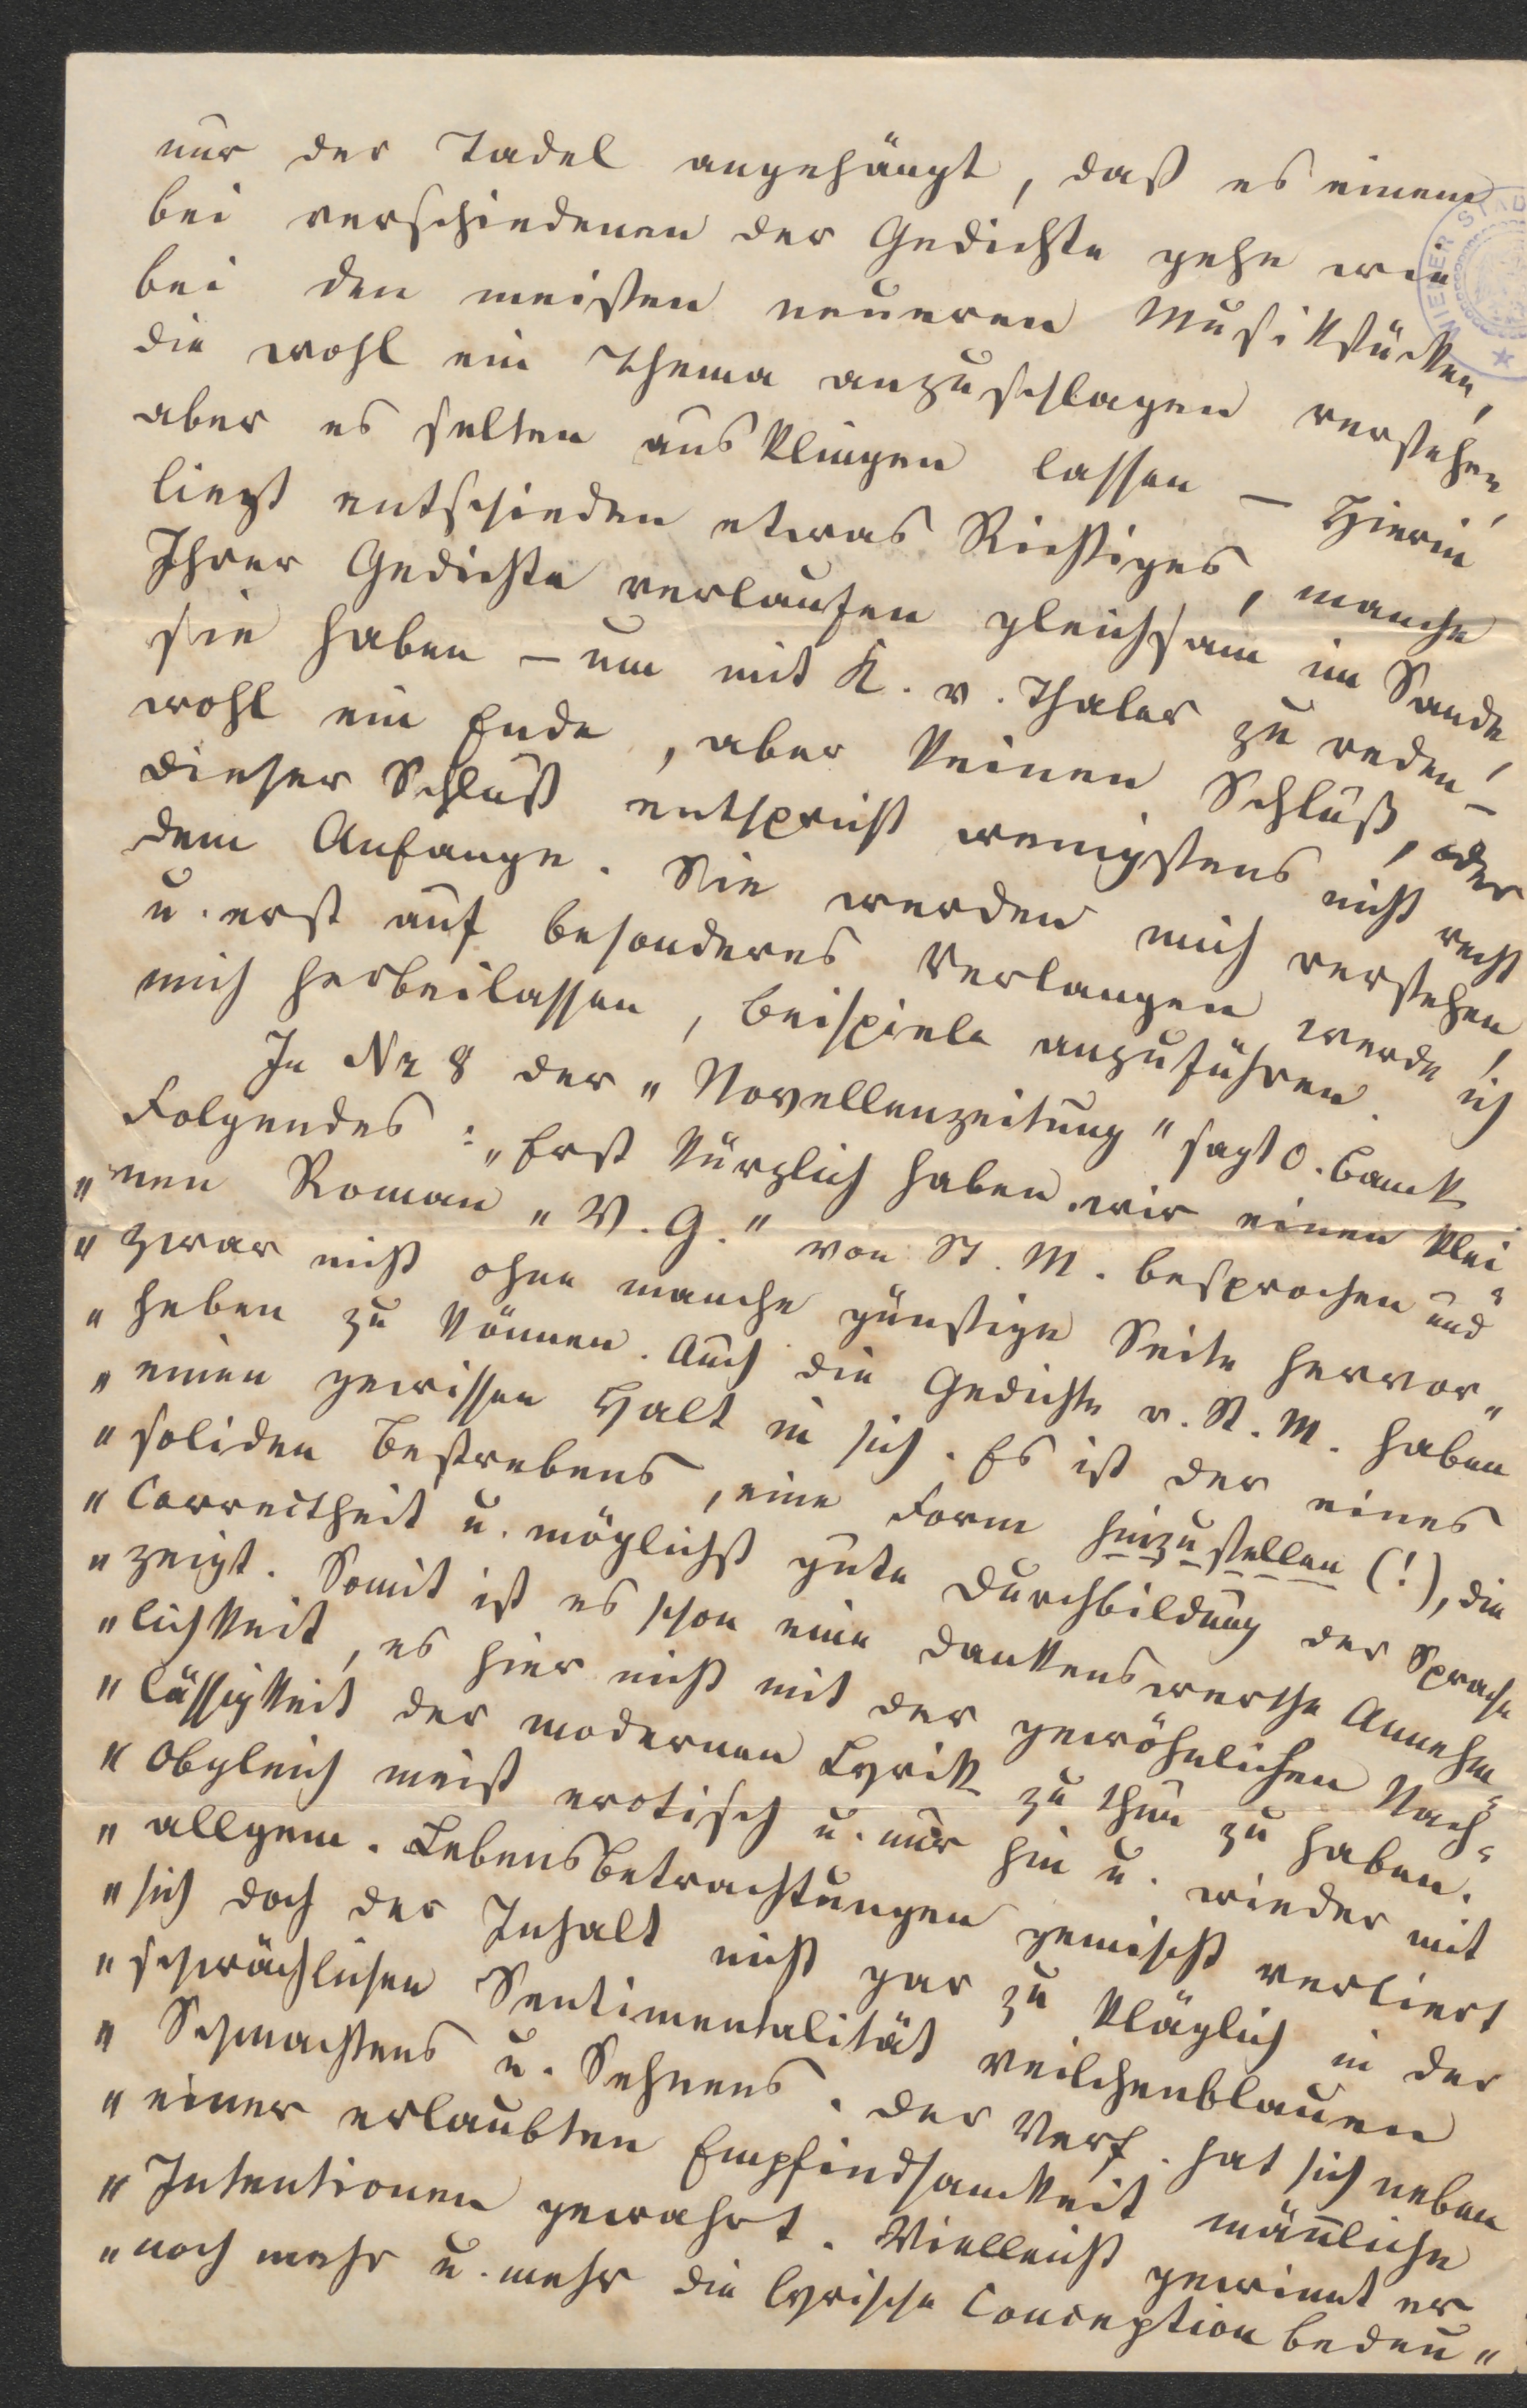 nur der Tadel angehängt, daß es einem
bei verschiedenen der Gedichte gehe wie
bei den meisten neueren Musikstücken,
die wohl ein Thema anzuschlagen verstehen,
aber es selten ausklingen lassen — Hierin
liegt entschieden etwas Richtiges, manche
Ihrer Gedichte verlaufen gleichsam im Sande,
sie haben — um mit K. v. Thaler zu reden! —
wohl ein Ende, aber keinen Schluß, oder
dieser Schluß entspricht wenigstens nicht recht
dem Anfange. Sie werden mich verstehen,
u. erst auf besonderes Verlangen werde ich
mich herbeilassen, Beispiele anzuführen.
In Nr 8 der „Novellenzeitung" sagt O. Banck
Folgendes: „Erst kürzlich haben wir einen klei-
„nen Roman „V. G." von St. M. besprochen und
„zwar nicht ohne manche günstige Seite hervor-
„heben zu können. Auch die Gedichte v. St. M. haben
„einen gewissen Halt in sich. Es ist der eines
„soliden Bestrebens, eine Form hinzustellen (!), die
„Correctheit u. möglichst gute Durchbildung der Sprache
„zeigt. Somit ist es schon eine dankenswerthe Annehm-
„lichkeit, es hier nicht mit der gewöhnlichen Nach-
„lässigkeit der modernen Lyrik zu thun zu haben.
„Obgleich meist erotisch u. nur hin u. wieder mit
„allgem. Lebensbetrachtungen gemischt verliert
„sich doch der Inhalt nicht gar zu kläglich in der
„schwächlichen Sentimentalität veilchenblauen
„Schmachtens u. Sehnens. Der Verf. hat sich neben
„einer erlaubten Empfindsamkeit männliche
„Intentionen gewahrt. Vielleicht gewinnt er
„noch mehr u. mehr die lyrische Conception bedeu-
WIENER STAD